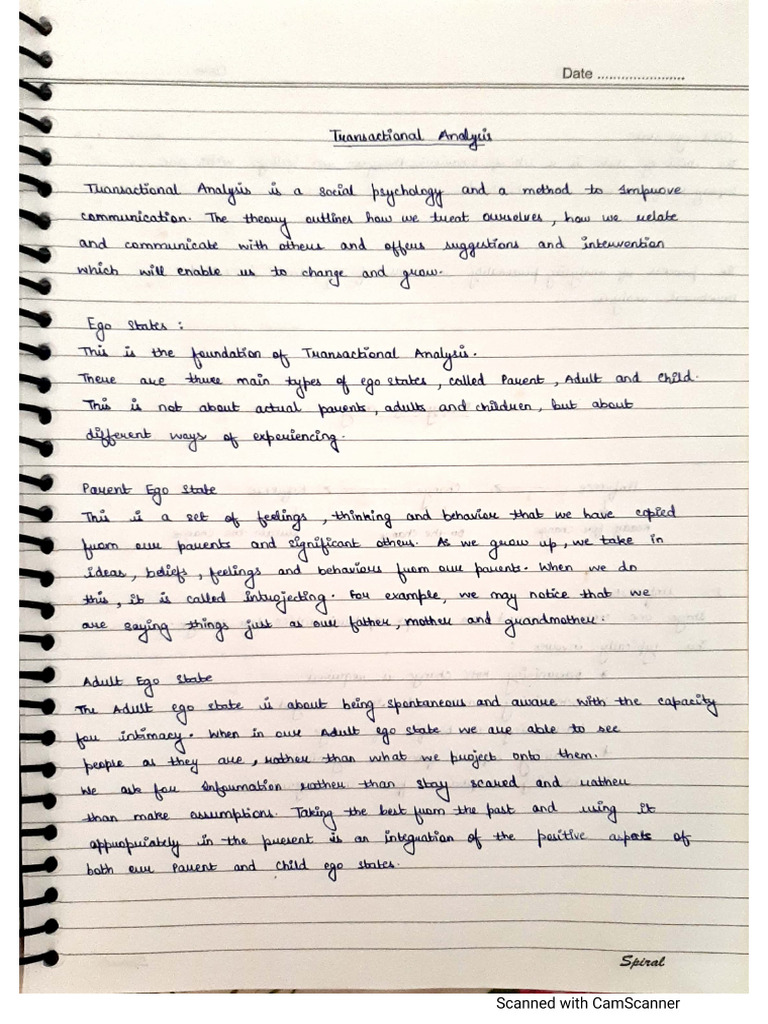 Date ......................
Transactional Analysis
Transactional Analysis is a social psychology and a method to improve
communication. The theory outlines how we treat ourselves, how we relate
and communicate with others and offers suggestions and intervention
which will enable us to change and grow.
Ego States :
This is the foundation of Transactional Analysis.
There are three main types of ego states, called Parent, Adult and Child.
This is not about actual parents, adults and children, but about
different ways of experiencing.
Parent Ego State
This is a set of feelings, thinking and behavior that we have copied
from our parents and significant others. As we grow up, we take in
ideas, beliefs, feelings and behaviours from our parents. When we do
this, it is called introjecting. For example, we may notice that we
are saying things just as our father, mother and grandmother.
Adult Ego State
The Adult ego state is about being spontaneous and aware with the capacity
for intimacy. When in our Adult ego state we are able to see
people as they are, rather than what we project onto them.
We ask for Information rather than stay scared and rather
than make assumptions. Taking the best from the past and using it
appropriately in the present is an integration of the positive aspects of
both our Parent and Child ego states.
Spiral
Scanned with CamScanner